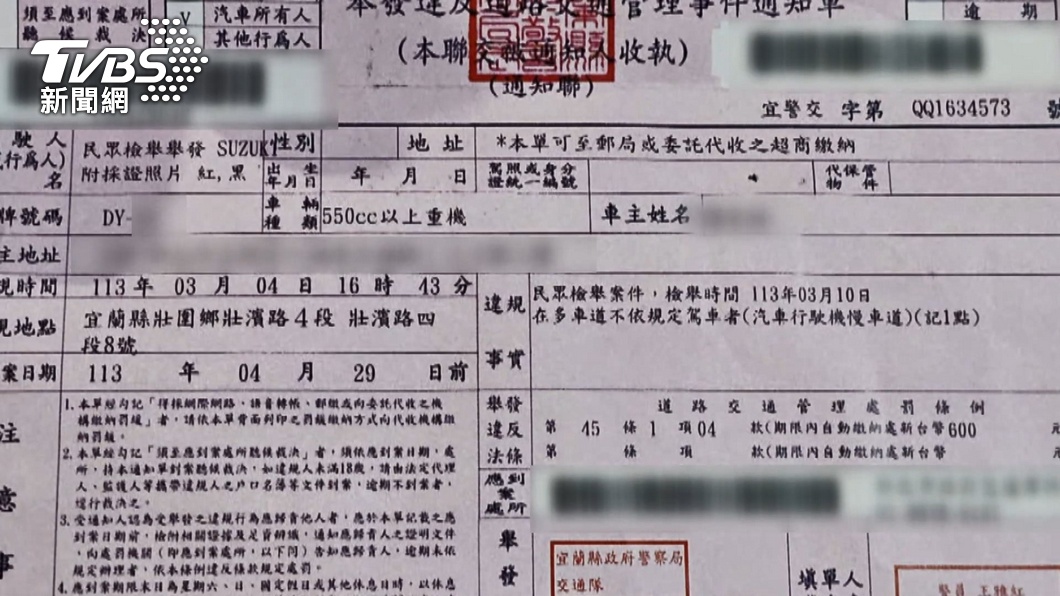 須至應到案處所
聽候裁決
V
汽車所有人
其他行為人
本發違反道路交通管理事件通知單
(本聯交被通知人收執)
(通知聯)
逾期
TVBS
新聞網
宜警交 字第 QQ1634573 號
駛人
行為人)
名
民眾檢舉舉發 SUZUK
附採證照片 紅,黑
性別
地址
*本單可至郵局或委託代收之超商繳納
出生
年月日
年 月 日
駕照或身分
證統一編號
代保管
物件
牌號碼
DY-
車輛
種類
550cc以上重機
車主姓名
主地址
規時間
113 年 03 月 04 日 16 時 43 分
見地點
宜蘭縣壯圍鄉壯濱路4段 壯濱路四
段8號
案日期
113 年 04 月 29 日前
違規
事實
民眾檢舉案件,檢舉時間 113年03月10日
在多車道不依規定駕車者(汽車行駛機慢車道)(記1點)
舉發
違反
法條
道路交通管理處罰條例
第 45 條 1 項 04 款(期限內自動繳納處新台幣600 元
第 條 項 款(期限內自動繳納處新台幣 元
應到
案
處所
注
意
事
1.本單經勾記「得採網際網路、語音轉帳、郵繳或向委託代收之機
構繳納罰鍰」者,請依本單背面列印之罰鍰繳納方式向代收機構繳
納罰鍰。
2.本單經勾記「須至應到案處所聽候裁決」者,須依應到案日期、處
所,持本通知單到案聽候裁決,如違規人未滿18歲,請由法定代理
人、監護人等攜帶違規人之戶口名簿等文件到案,逾期不到案者,
逕行裁決之。
3.受通知人認為受舉發之違規行為應歸責他人者,應於本單記載之應
到案日期前,檢附相關證據及足資辨識,通知應歸責人之證明文件
,向處罰機關(即應到案處所,以下同)告知應歸責人,逾期未依
規定辦理者,依本條例違反條款規定處罰。
4.應到案期限末日為星期六、日、國定假日或其他休息日時,以休息
舉
發
宜蘭縣政府警察局
交通隊
填單人
警員 王雅紅